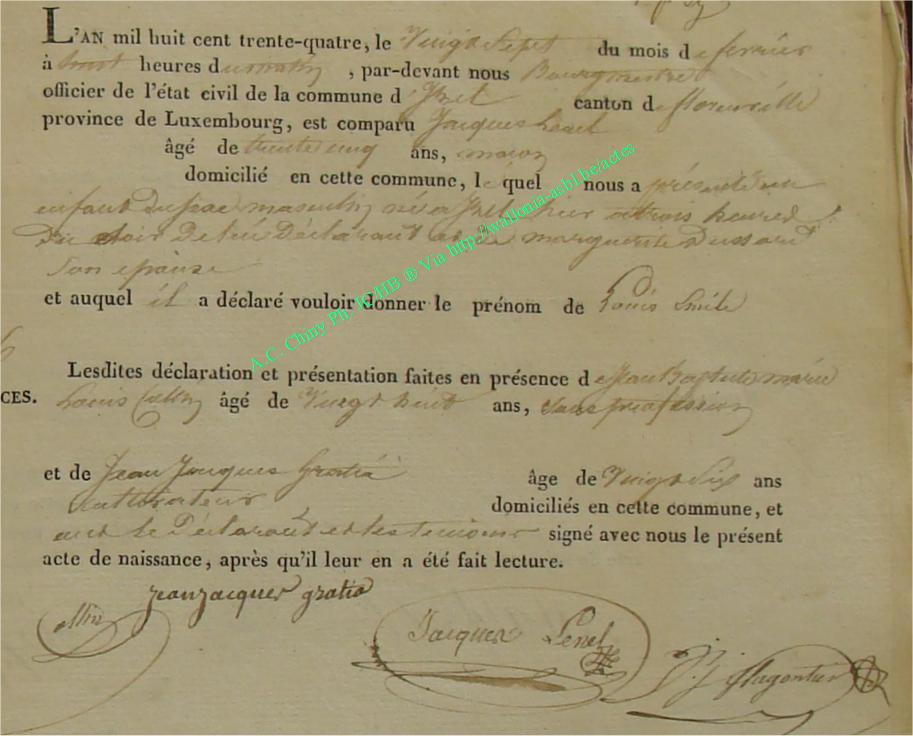 L'AN mil huit cent trente-quatre, le Vingt Sept du mois de fevrier
à huit heures du matin, par-devant nous Bourgmestre
officier de l'état civil de la commune d'Izel canton de florenville
province de Luxembourg, est comparu Jacques Lenel
âgé de trente cinq ans, maçon
domicilié en cette commune, le quel nous a présenté un
enfant du sexe masculin né a Izel hier a trois heures
du soir De lui Déclarant et de marguerite Dussart
Son epouse
et auquel il a déclaré vouloir donner le prénom de Louis Emile
Lesdites déclaration et présentation faites en présence de Jean Baptiste marie
CES. Louis âgé de Vingt huit ans, Sans profession
et de Jean Jacques Gratia âge de Vingt Six ans
Cultivateur domiciliés en cette commune, et
ont le Déclarant et les temoins signé avec nous le présent
acte de naissance, après qu'il leur en a été fait lecture.
jean jacques gratia
Jacques Lenel
A.C. Chiny Ph. IGHB ® Via http://wallonia-asbl.be/actes